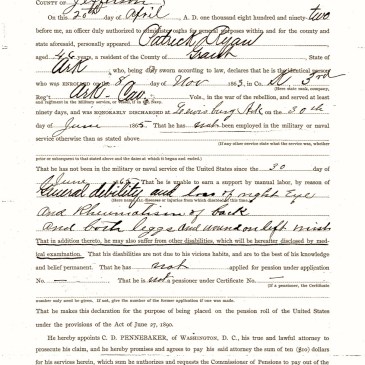 COUNTY OF Jefferson
On this 20th day of April, A. D. one thousand eight hundred and ninety-two
before me, an officer duly authorized to administer oaths for general purposes within and for the county and
state aforesaid, personally appeared Patrick L Ryan
aged years, a resident of Grant County, State of
Ark, who, being duly sworn according to law, declares that he is the identical person
who was ENROLLED on the day of Nov 186, in Co. M 3rd
Reg't Ark Cav Vols., in the war of the rebellion, and served at least
ninety days, and was HONORABLY DISCHARGED at Lewisburg Ark on the 30th
day of June 1865 That he has not been employed in the military or naval
service otherwise than as stated above
(If any other service state what the service was, whether
prior or subsequent to that stated above and the dates at which it began and ended.)
That he has not been in the military or naval service of the United States since the 30 day
of June 1865 That he is unable to earn a support by manual labor, by reason of
General debility and loss of right Eye
And Rheumatism of back
and both leggs and wound on left
That in addition thereto, he may also suffer from other disabilities, which will be hereafter disclosed by med-
ical examination. That his disabilities are not due to his vicious habits, and are to the best of his knowledge
and belief permanent. That he has not applied for pension under application
No. — That he is not pensioner under Certificate No. —
(If a pensioner, the Certificate
number only need be given. If not, give the number of the former application if one was made.
That he makes this declaration for the purpose of being placed on the pension roll of the United States
under the provisions of the Act of June 27, 1890.
He hereby appoints C. D. PENNEBAKER, OF WASHINGTON, D. C., his true and lawful attorney to
prosecute his claim, and he hereby promises and agrees to pay his said attorney the sum of ten ($10) dollars
for his services herein, which sum he authorizes and requests the Commissioner of Pensions to pay out of the